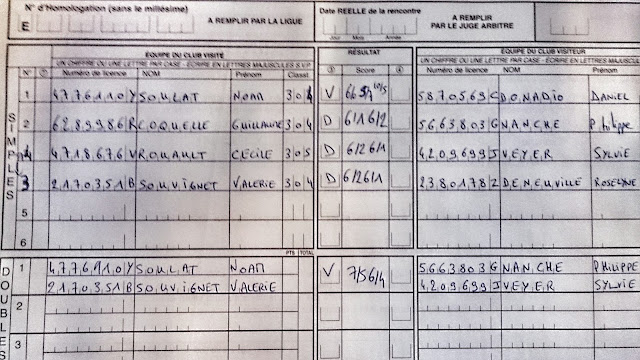 N° d'Homologation (sans le millésime)
E
A REMPLIR PAR LA LIGUE
Date REELLE de la rencontre
Jour Mois Année
A REMPLIR
PAR LE JUGE ARBITRE
EQUIPE DU CLUB VISITÉ RÉSULTAT EQUIPE DU CLUB VISITEUR
UN CHIFFRE OU UNE LETTRE PAR CASE - ÉCRIRE EN LETTRES MAJUSCULES S.V.P. UN CHIFFRE OU UNE LETTRE PAR CASE - ÉCRIRE EN LETTRES MAJUSCULES
N° Numéro de licence NOM Prénom Classt Score Numéro de licence NOM Prénom
SIMPLES
1 4776110Y SOULAT NOAM 304 V 5870569C DONADIO DANIEL
2 6289986R COQUELLE GUILLAUME 304 D 6/1 6/2 5663803G NANCHE Philippe
4 4718676V ROUAULT CECILE 305 D 6/2 6/1 4209699J VEYER SYLVIE
3 2170351B SOUVIGNET VALERIE 304 D 6/2 6/1 2380178Z DENEUVILLE ROSELYNE
5
6
PTS TOTAL
DOUBLES
1 4776110Y SOULAT NOAM V 7/5 6/4 5663803G NANCHE PHILIPPE
2170351B SOUVIGNET VALERIE 4209699J VEYER SYLVIE
2
3